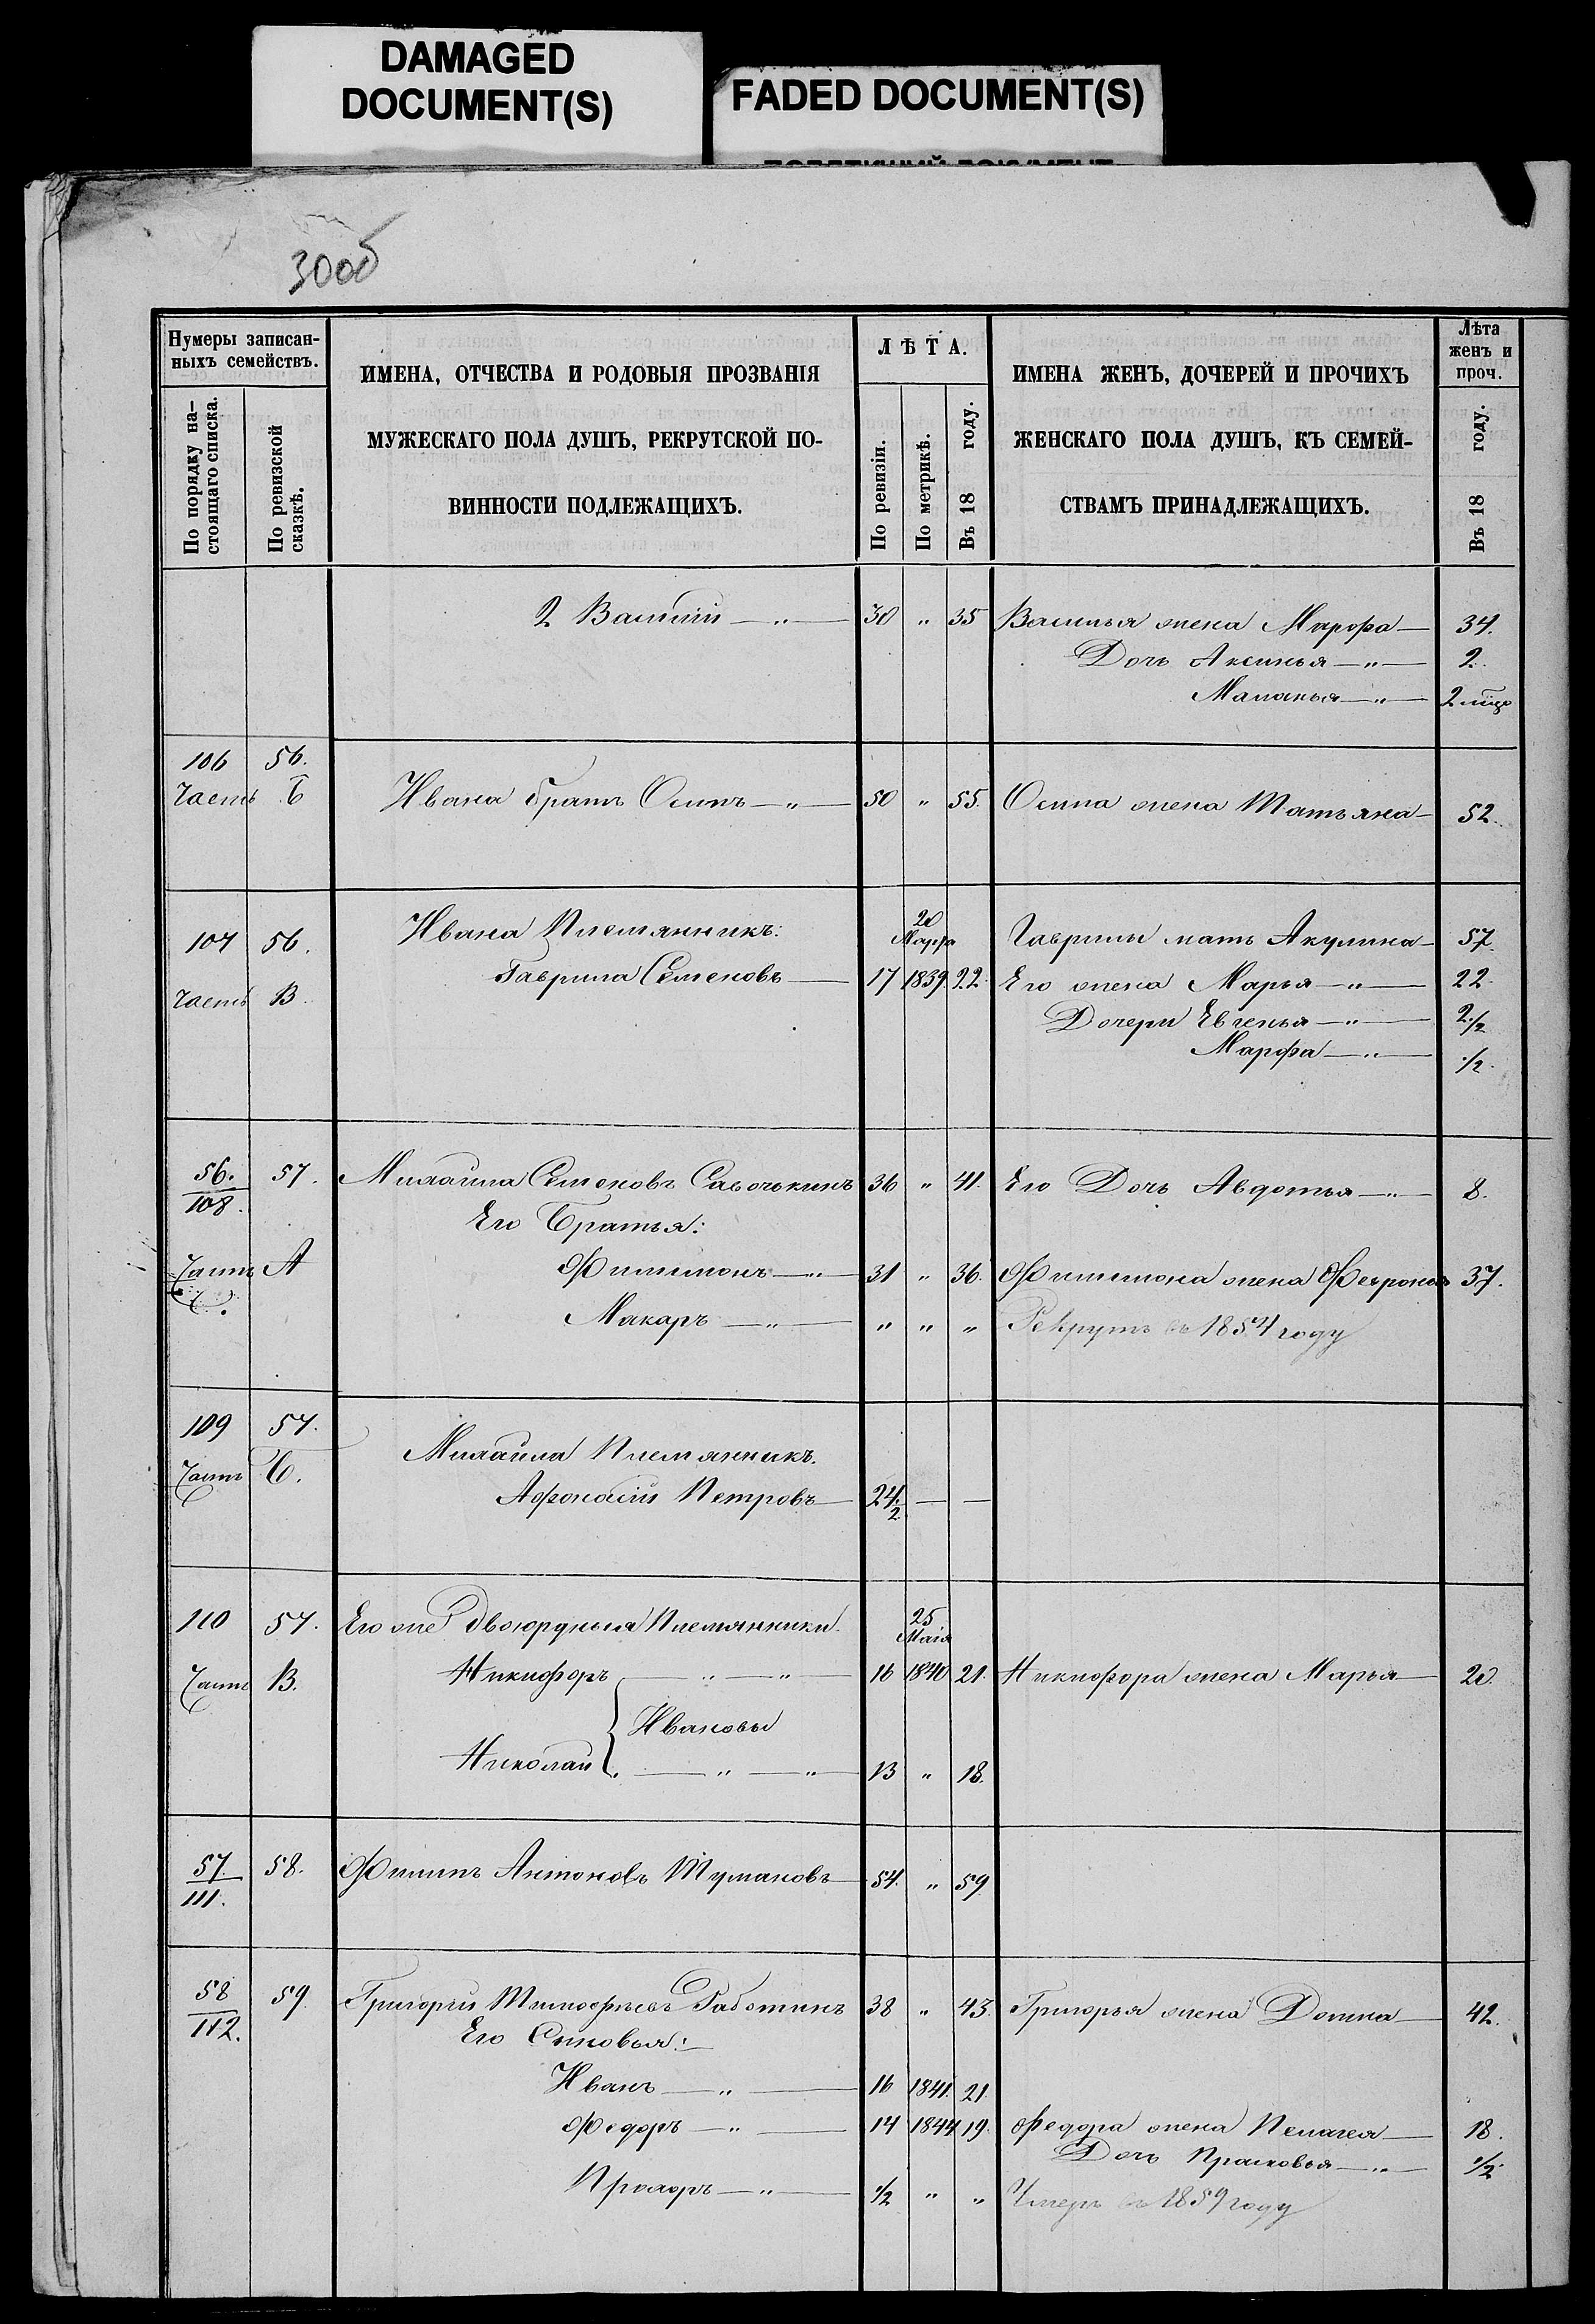 DAMAGED
DOCUMENT(S)
FADED DOCUMENT(S)
300об
Нумеры записан-
ныхъ семействъ.
По порядку на-
стоящаго списка.
По ревизской
сказкѣ.
ИМЕНА, ОТЧЕСТВА И РОДОВЫЯ ПРОЗВАНІЯ
МУЖЕСКАГО ПОЛА ДУШЪ, РЕКРУТСКОЙ ПО-
ВИННОСТИ ПОДЛЕЖАЩИХЪ.
ЛѢТА.
По ревизіи.
По метрикѣ.
Въ 18 году.
ИМЕНА ЖЕНЪ, ДОЧЕРЕЙ И ПРОЧИХЪ
ЖЕНСКАГО ПОЛА ДУШЪ, КЪ СЕМЕЙ-
СТВАМЪ ПРИНАДЛЕЖАЩИХЪ.
Лѣта
женъ и
проч.
Въ 18 году.
2 Василій — „ — 30 „ 35 Василья жена Марфа — 34.
Дочь Аксинья — „ — 2.
Маланья — „ — 2
106 56.
Часть Б Ивана братъ Осипъ — „ — 50 „ 55. Осипа жена Татьяна — 52.
107 56. Ивана Племянникъ: 20 Марта Гаврилы мать Акулина — 57.
Гаврила Семеновъ — 17 1839. 22. Его жена Марья — „ — 22.
Часть В. Дочери Евгенья — „ — 2 1/2
Марфа — „ — 1/2.
56./108. 57. Михайла Семеновъ Савочькинъ 36 „ 41. Его Дочь Авдотья — „ — 8.
Его Братья:
Часть А Филимонъ — „ — 31 „ 36. Филимона жена Февронья 37.
Макаръ — „ — „ „ „ Рекрутъ въ 1854 году
109 57.
Часть Б. Михайла Племянникъ.
Афонасій Петровъ — 24/2 — —
110 57. Его же Двоюрдныя Племянники. 25 Маія
Часть В. Никифоръ — „ — „ — 16 1840 21. Никифора жена Марья — 20.
Ивановы
Николай — „ — „ — 13 „ 18.
57./111. 58. Филипъ Антоновъ Тумановъ — 54. „ 59
58/112. 59. Григорій Тимофѣевъ Работинъ 38 „ 43. Григорья жена Домна — 42.
Его Сыновья: —
Иванъ — „ — 16 1841. 21.
Федоръ — „ — 14 1844 19. Федора жена Пелагея — 18.
Дочь Прасковья — „ — 1/2.
Прохоръ — „ — 1/2 „ „ Умеръ въ 1859 году